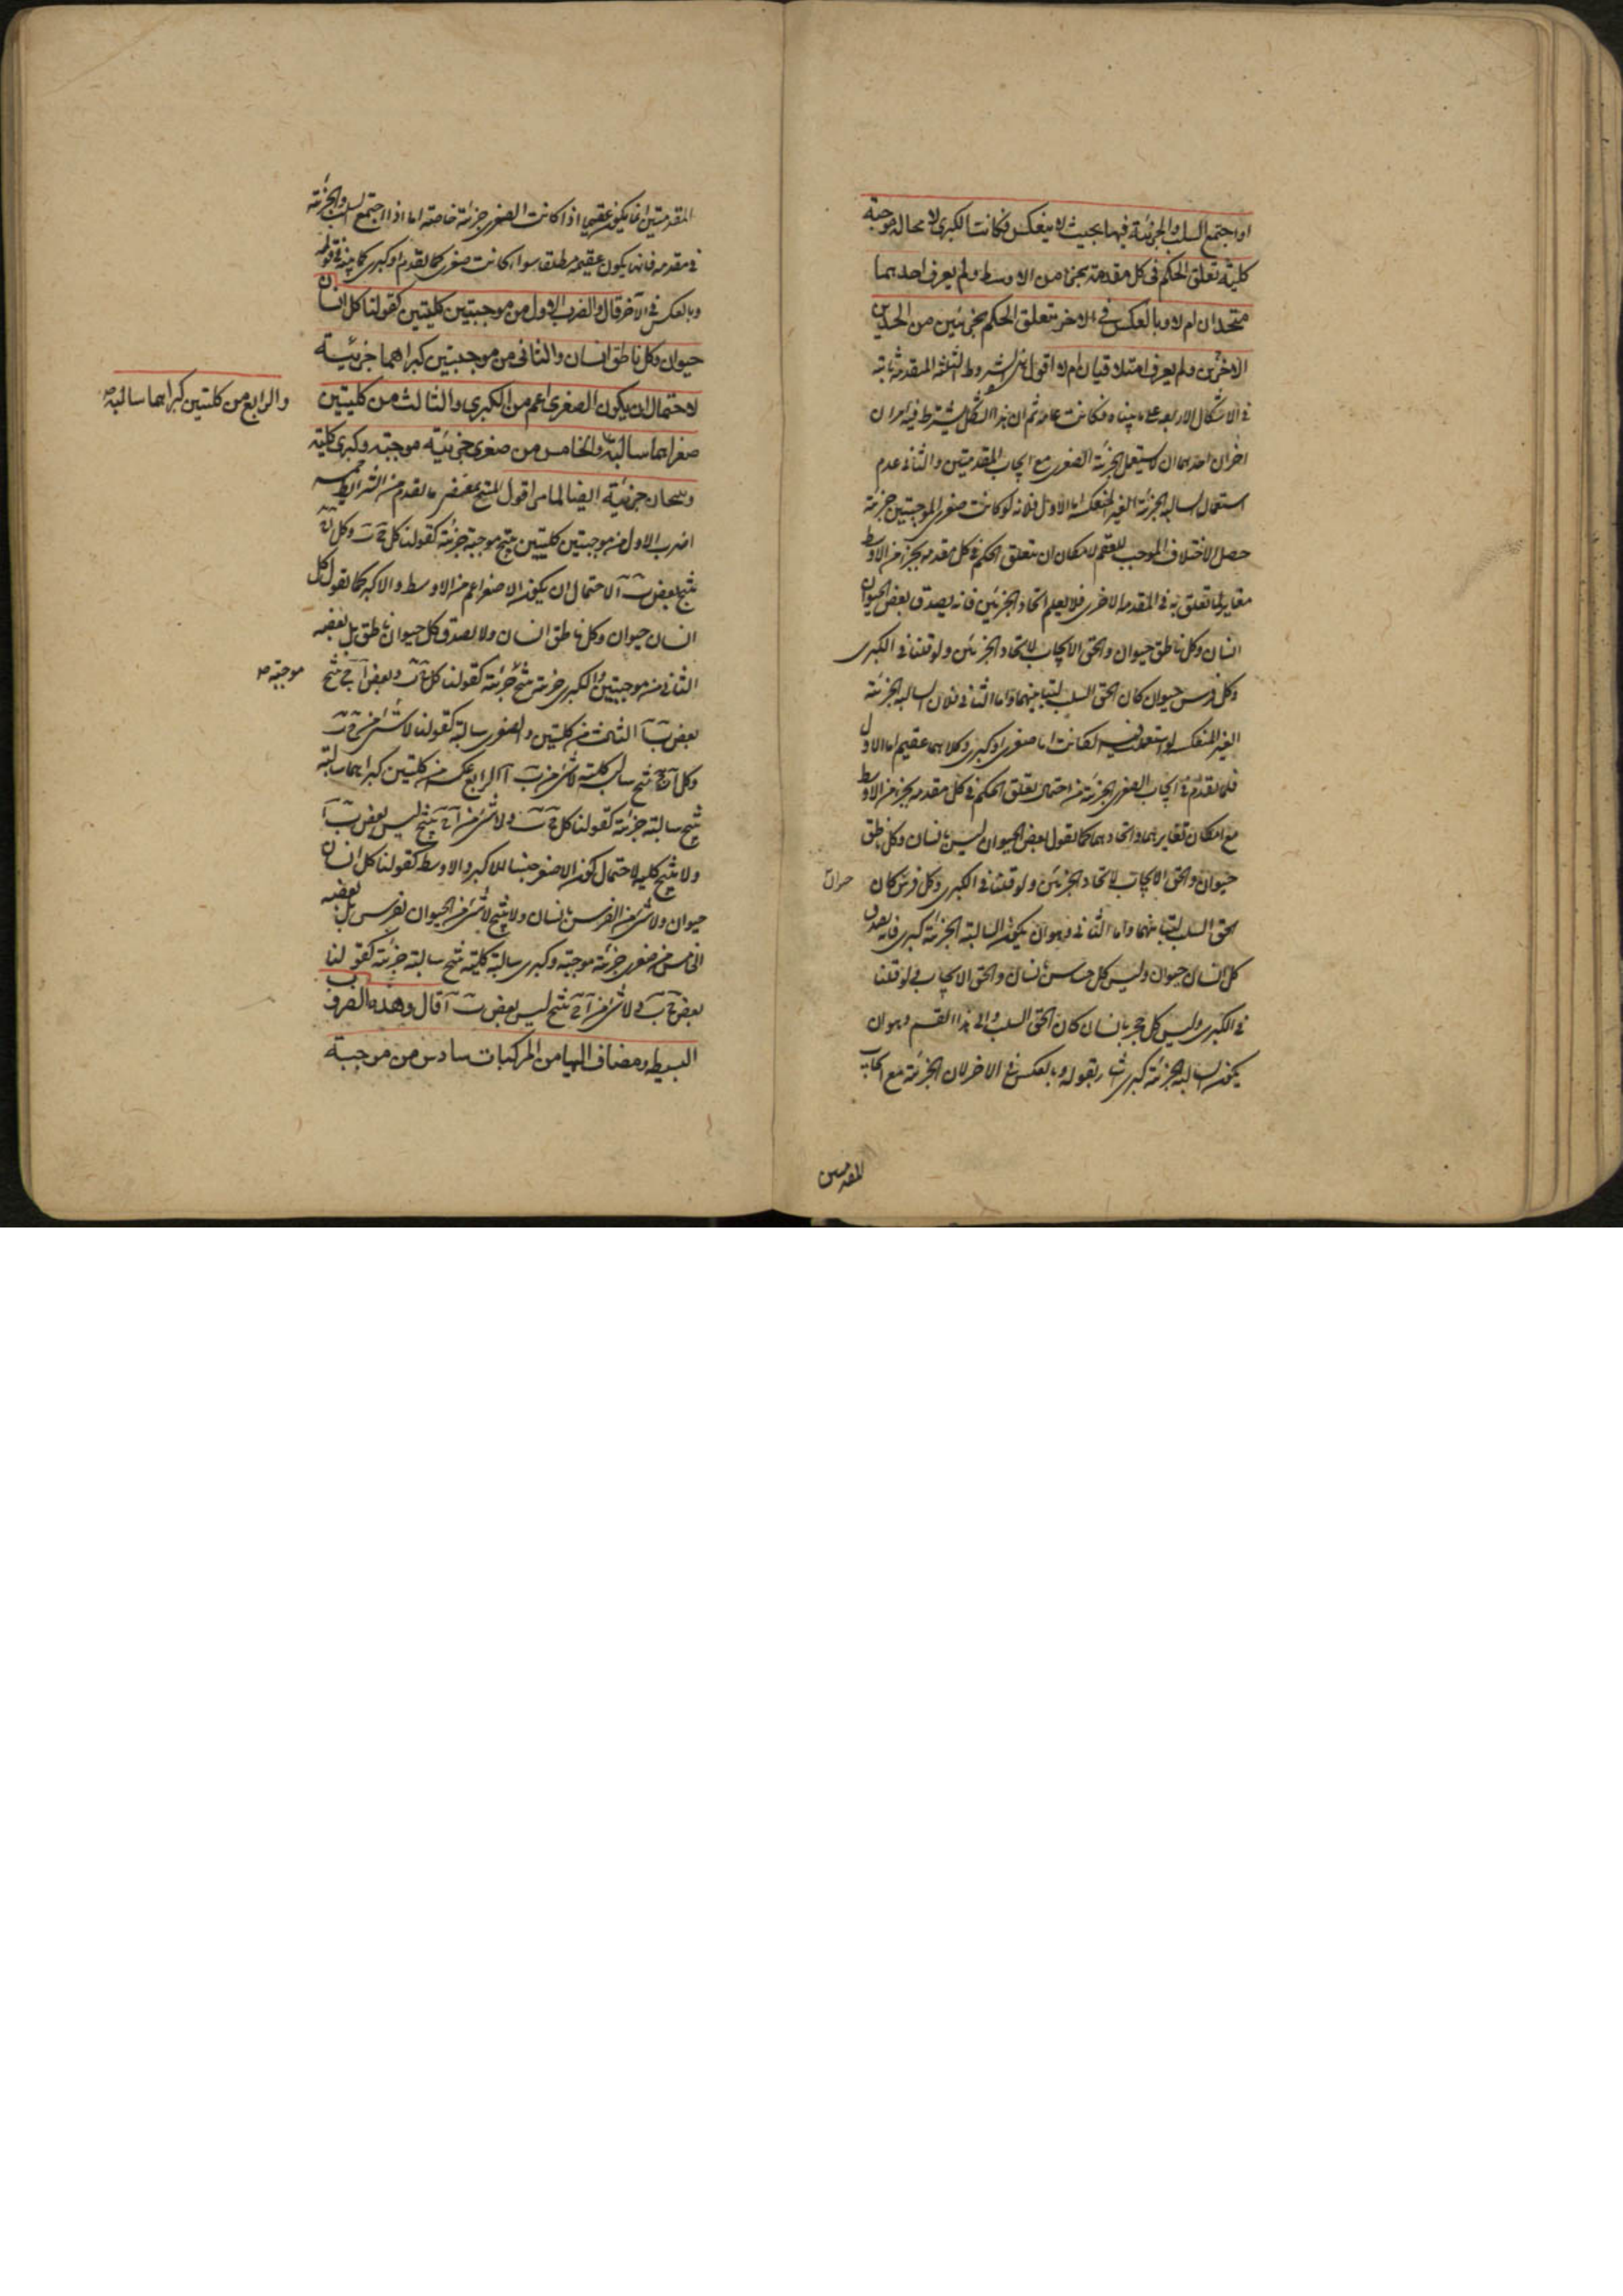 او اجتمع السلب والجزئية فيها بحيث لا ينعكس فكانت الكبرى لا محالة موجبة
كلية تعلق الحكم فى كل مقدمة بجزء من الاوسط ولم يعرف احد هما
متحدان ام لا وبالعكس فى الاخر يتعلق الحكم بجزئين من الحدين
الاخرين ولم يعرف امتلاقيان ام لا اقول هذه الشروط الثلثة المتقدمة ثابتة
فى الاشكال الاربعة على ما بيناه فكانت عامة ثم ان هذا الشكل يشترط فيه امران
اخران احدهما ان لا يستعمل الجزئية الصغرى مع ايجاب المقدمتين والثانى عدم
استعمال السالبة الجزئية الغير المنعكسة اما الاول فلانه لو كانت صغرى الموجبتين جزئية
حصل الاختلاف الموجب للعقم لامكان ان يتعلق الحكم فى كل مقدمة بجزء من الاوسط
مغاير لما تعلق به فى المقدمة الاخرى فلا يعلم اتحاد الجزئين فانه يصدق بعض الحيوان
انسان وكل ناطق حيوان والحق الايجاب لاتحاد الجزئين ولو قلنا فى الكبرى
وكل فرس حيوان كان الحق السلب لتباينهما واما الثانى فلان السالبة الجزئية
الغير المنعكسة لو استعملت فيه لكانت اما صغرى او كبرى وكلاهما عقيم اما الاول
فلما تقدم فى ايجاب الصغرى الجزئية من احتمال تعلق الحكم فى كل مقدمة بجزء من الاوسط
مع امكان تغايرهما واتحادهما كما تقول بعض الحيوان ليس بانسان وكل ناطق
حيوان والحق الايجاب لاتحاد الجزئين ولو قلنا فى الكبرى وكل فرس كان
حيوان
الحق السلب لتباينهما واما الثانى وهو ان يكون السالبة الجزئية كبرى فانه يصدق
كل انسان حيوان وليس كل حساس بانسان والحق الايجاب ولو قلنا
فى الكبرى وليس كل حجر بانسان كان الحق السلب والى هذا القسم وهو ان
يكون السالبة الجزئية كبرى اشار بقوله وبالعكس فى الاخر لان الجزئية مع ايجاب
المقدمتين
المقدمتين انما يكون عقيما اذا كانت الصغرى جزئية خاصة اما اذا اجتمع السلب والجزئية
فى مقدمة فانها يكون عقيمة مطلقا سواء كانت صغرى كما تقدم او كبرى كما بينه فى قوله
وبالعكس فى الآخر قال والضرب الاول من موجبتين كليتين كقولنا كل انسان
حيوان وكل ناطق انسان والثانى من موجبتين كبراهما جزئية
لاحتمال ان يكون الصغرى اعم من الكبرى والثالث من كليتين
صغراهما سالبة والخامس من صغرى جزئية موجبة وكبرى كلية
والرابع من كلتين كبراهما سالبة
وينتجان جزئية ايضا لما مر اقول المنتج بمقتضى ما تقدم من الشرائط خمسة
اضرب الاول من موجبتين كليتين ينتج موجبة جزئية كقولنا كل ج ب وكل ا ج
ينتج بعض ب ا لاحتمال ان يكون الاصغر اعم من الاوسط والاكبر كما تقول كل
انسان حيوان وكل ناطق انسان ولا يصدق كل حيوان ناطق بل بعضه
الثانى من موجبتين والكبرى جزئية ينتج جزئية كقولنا كل ج ب وبعض ا ج ينتج
موجبة
بعض ب ا الثالث من كليتين والصغرى سالبة كقولنا لا شئ من ج ب
وكل ا ج ينتج سالبة كلية لا شئ من ب ا الرابع عكسه من كليتين كبراهما سالبة
ينتج سالبة جزئية كقولنا كل ج ب ولا شئ من ا ج ينتج ليس بعض ب ا
ولا ينتج كلية لاحتمال كون الاصغر جنسا للاكبر والاوسط كقولنا كل انسان
حيوان ولا شئ من الفرس بانسان ولا ينتج لا شئ من الحيوان بفرس بل بعضه
الخامس من صغرى جزئية موجبة وكبرى سالبة كلية ينتج سالبة جزئية كقولنا
بعض ج ب ولا شئ من ا ج ينتج ليس بعض ب ا قال وهذه الضروب
البسيطة ومضاف اليها من المركبات سادس من موجبة